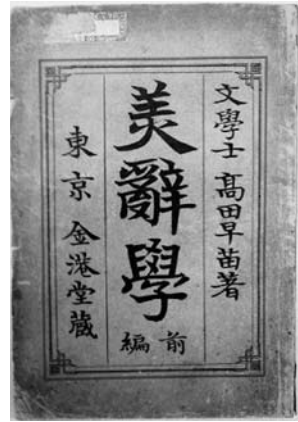 文學士 高田早苗著
美辭學
前編
東京 金港堂蔵